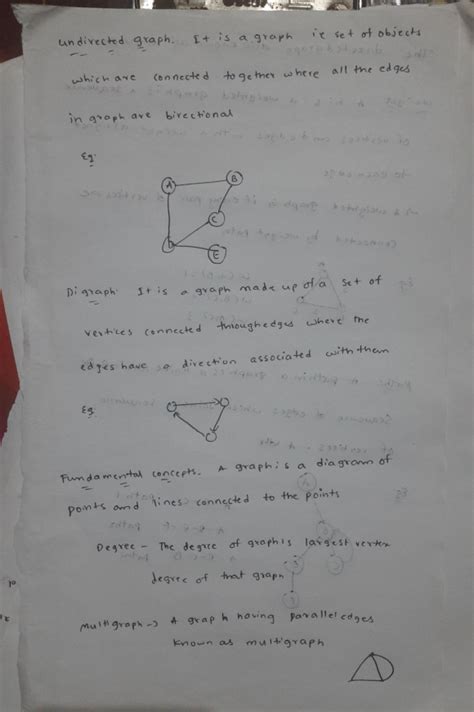 undirected graph. It is a graph ie set of objects
which are connected together where all the edges
in graph are birectional
Eg:
A
B
C
D
E
Digraph: It is a graph made up of a set of
vertices connected through edges where the
edges have a direction associated with them
Eg
Fundamental concepts. A graph is a diagram of
points and lines connected to the points
Degree - The degree of graph is largest vertex
degree of that graph
Multigraph -> A graph having parallel edges
known as multigraph